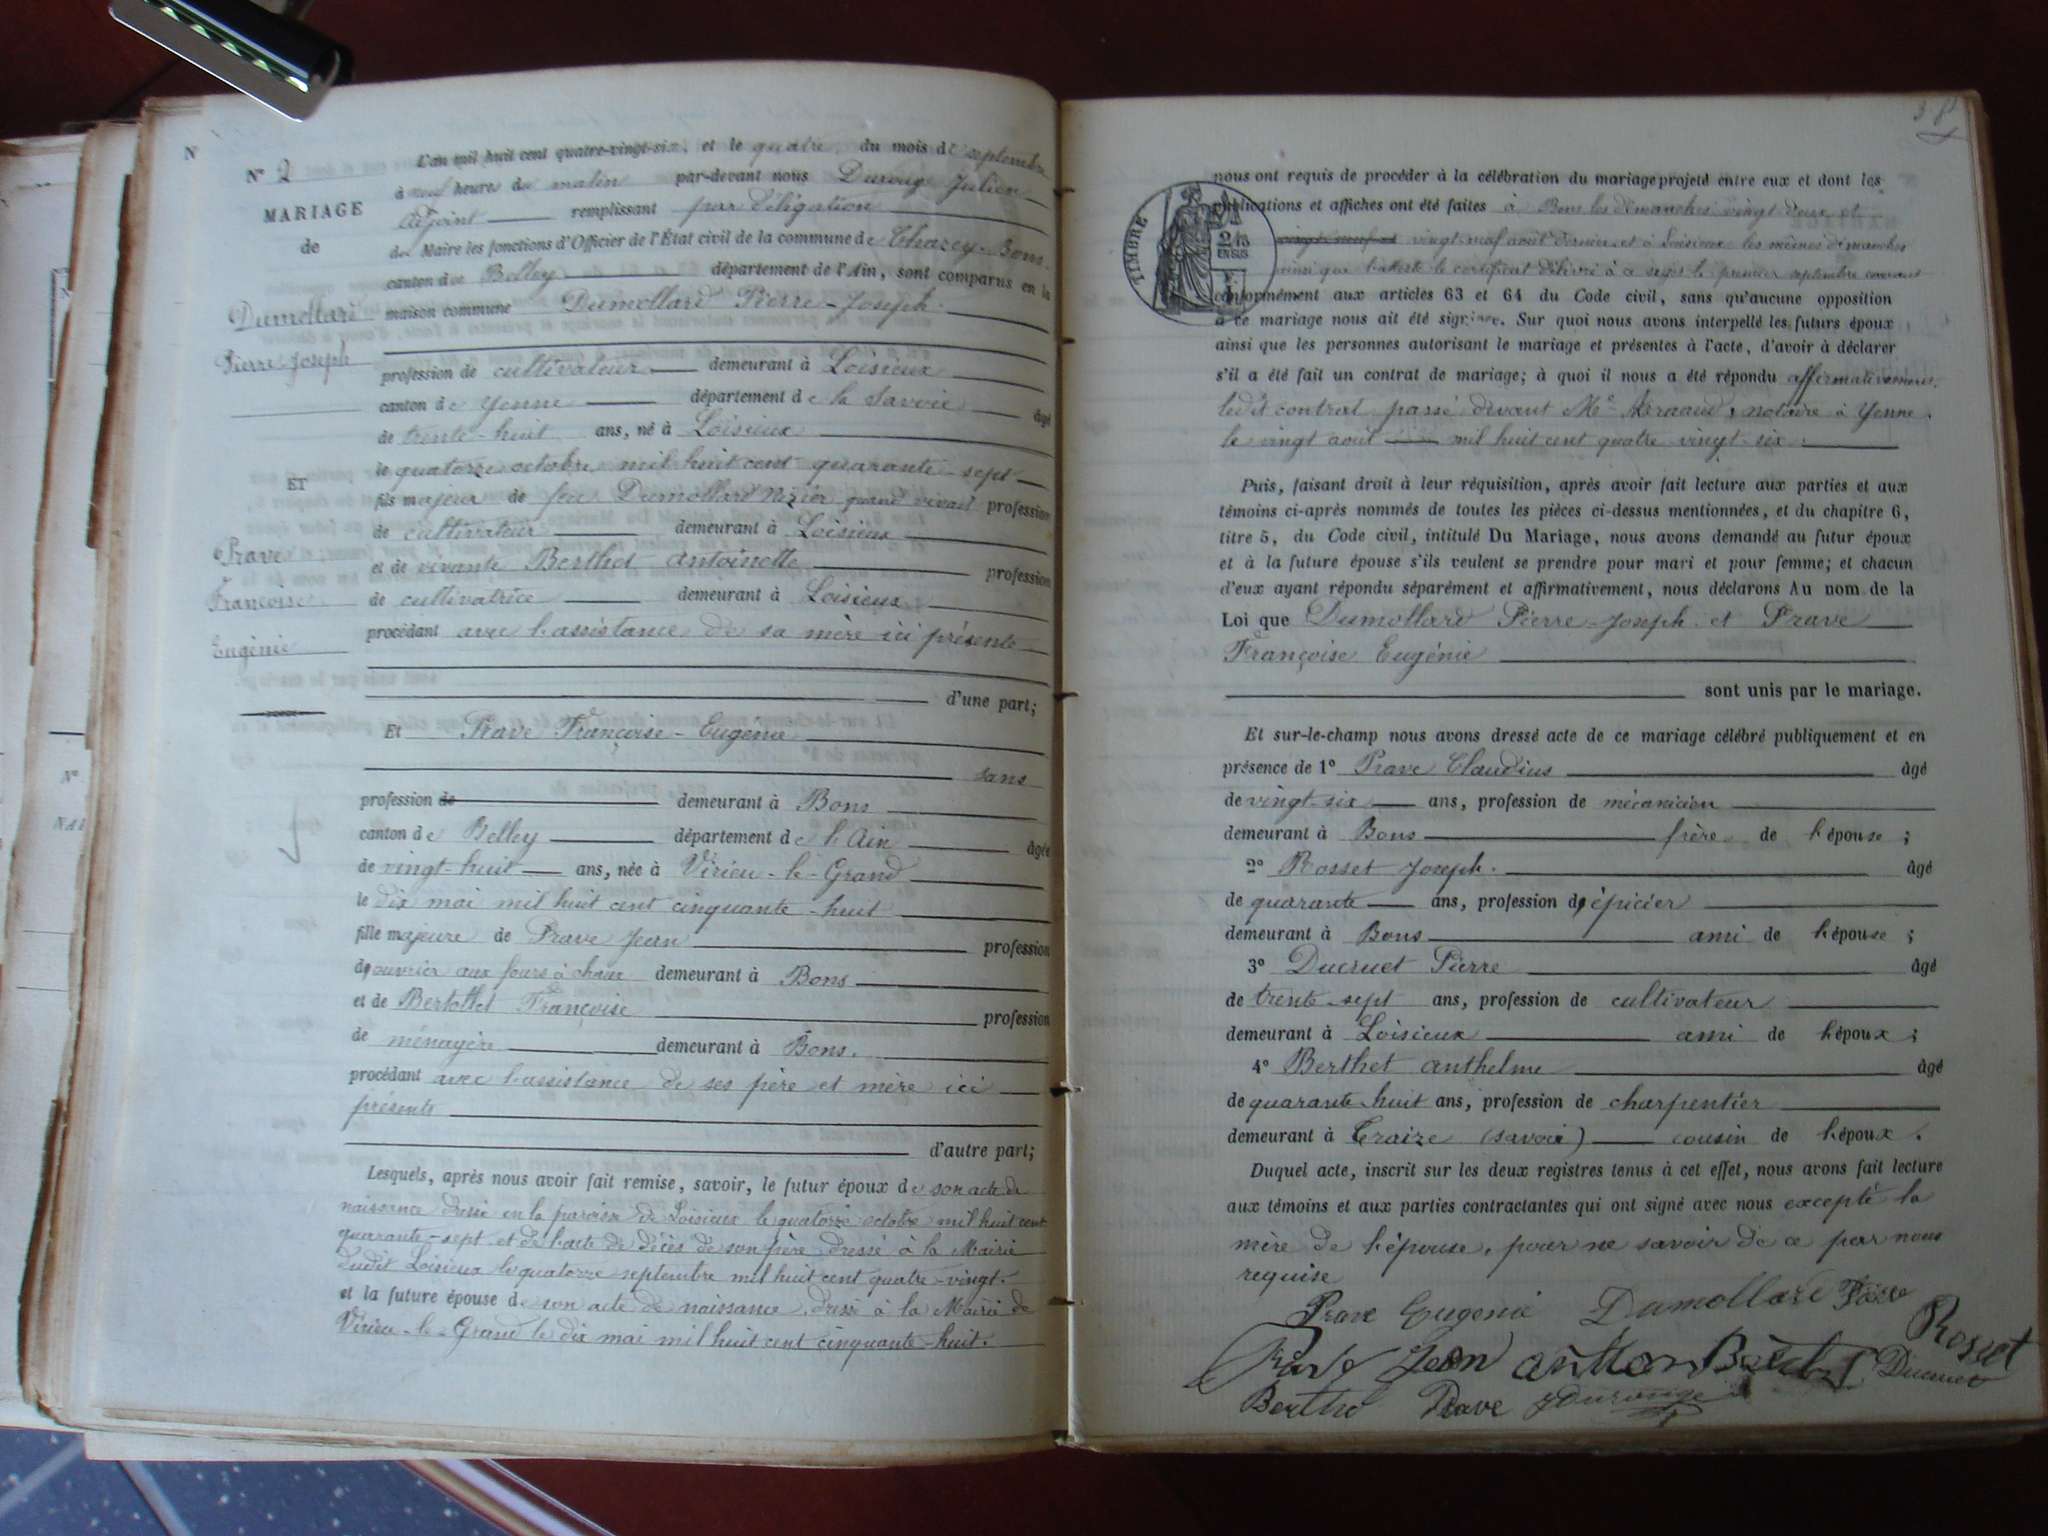 N
N° 2
MARIAGE
de
Dumollard
Pierre Joseph
ET
Prave
Françoise
Eugénie
L'an mil huit cent quatre-vingt-six, et le quatre du mois de septembre
à neuf heures du matin par-devant nous Durouge Julien
Adjoint remplissant par déligation
du Maire les fonctions d'Officier de l'État civil de la commune de Chazey-Bons
canton de Belley département de l'Ain, sont comparus en la
maison commune Dumollard Pierre-Joseph.
profession de cultivateur demeurant à Loisieux
canton de Yenne département de la Savoie âgé
de trente-huit ans, né à Loisieux
le quatorze octobre mil huit cent quarante-sept
fils majeur de feu Dumollard Nizier quand vivait profession
de cultivateur demeurant à Loisieux
et de vivante Berthet Antoinette profession
de cultivatrice demeurant à Loisieux
procédant avec l'assistance de sa mère ici présente
d'une part;
Et Prave Françoise-Eugénie
sans
profession de demeurant à Bons
canton de Belley département de l'Ain âgée
de vingt-huit ans, née à Virieu-le-Grand
le dix mai mil huit cent cinquante-huit
fille majeure de Prave Jean profession
d'ouvrier aux fours à chaux demeurant à Bons
et de Bertottet Françoise profession
de ménagère demeurant à Bons.
procédant avec l'assistance de ses père et mère ici
présents
d'autre part;
Lesquels, après nous avoir fait remise, savoir, le futur époux de son acte de
naissance dressé en la paroisse de Loisieux le quatorze octobre mil huit cent
quarante-sept et de l'acte de décès de son père dressé à la Mairie
dudit Loisieux le quatorze septembre mil huit cent quatre-vingt.
et la future épouse de son acte de naissance, dressé à la Mairie de
Virieu-le-Grand le dix mai mil huit cent cinquante-huit.
38
TIMBRE
2/10
EN SUS
nous ont requis de procéder à la célébration du mariage projeté entre eux et dont les
publications et affiches ont été faites à Bons les dimanches vingt deux et
vingt neuf et vingt-neuf août dernier et à Loisieux les mêmes dimanches
ainsi que l'atteste le certificat délivré à ce sujet le premier septembre courant
conformément aux articles 63 et 64 du Code civil, sans qu'aucune opposition
à ce mariage nous ait été signifiée. Sur quoi nous avons interpellé les futurs époux
ainsi que les personnes autorisant le mariage et présentes à l'acte, d'avoir à déclarer
s'il a été fait un contrat de mariage; à quoi il nous a été répondu affirmativement,
ledit contrat passé devant Me notaire à Yenne.
le vingt août mil huit cent quatre vingt-six.
Puis, faisant droit à leur réquisition, après avoir fait lecture aux parties et aux
témoins ci-après nommés de toutes les pièces ci-dessus mentionnées, et du chapitre 6,
titre 5, du Code civil, intitulé Du Mariage, nous avons demandé au futur époux
et à la future épouse s'ils veulent se prendre pour mari et pour femme; et chacun
d'eux ayant répondu séparément et affirmativement, nous déclarons Au nom de la
Loi que Dumollard Pierre-Joseph et Prave
Françoise Eugénie
sont unis par le mariage.
Et sur-le-champ nous avons dressé acte de ce mariage célébré publiquement et en
présence de 1° Prave Claudius âgé
de vingt-six ans, profession de mécanicien
demeurant à Bons frère de l'épouse;
2° Rosset Joseph. âgé
de quarante ans, profession d'épicier
demeurant à Bons ami de l'épouse;
3° Ducruet Pierre âgé
de trente-sept ans, profession de cultivateur
demeurant à Loisieux ami de l'époux;
4° Berthet Anthelme âgé
de quarante huit ans, profession de charpentier
demeurant à Traize (Savoie) cousin de l'époux.
Duquel acte, inscrit sur les deux registres tenus à cet effet, nous avons fait lecture
aux témoins et aux parties contractantes qui ont signé avec nous excepté la
mère de l'épouse, pour ne savoir de ce par nous
requise
Prave Eugenie Dumollard Pierre
Rosset
Prave Jean Ducruet
Prave JDurouge